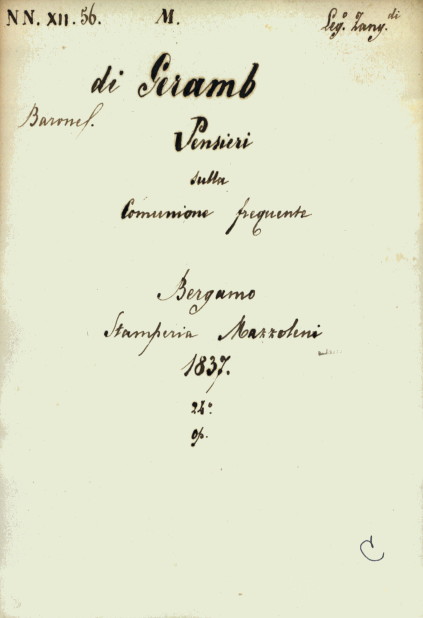 NN. XII. 56. M. Leg.º Zang.di
di Geramb
Barone
Pensieri
sulla
Comunione frequente
Bergamo
Stamperia Mazzoleni
1837.
24º.
op.
C